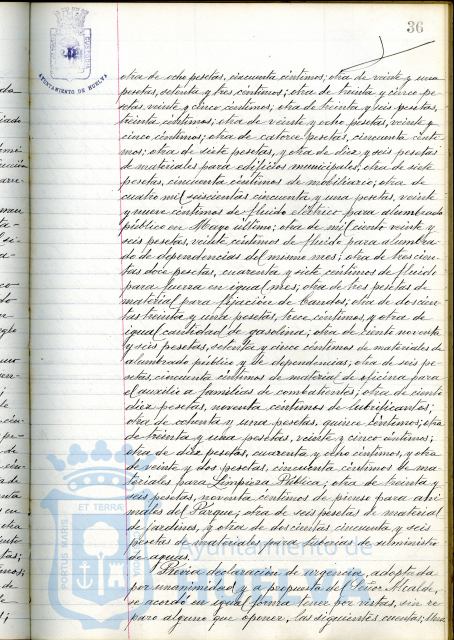 36
AYUNTAMIENTO DE HUELVA
otra de ocho pesetas, cincuenta céntimos; otra de veinte y una
pesetas, setenta y tres céntimos; otra de treinta y cinco pe-
setas, veinte y cinco céntimos; otra de treinta y seis pesetas,
treinta céntimos; otra de veinte y ocho pesetas, veinte y
cinco céntimos; otra de catorce pesetas, cincuenta cénti-
mos; otra de siete pesetas, y otra de diez y seis pesetas
de materiales para edificios municipales; otra de siete
pesetas, cincuenta céntimos de mobiliario; otra de
cuatro mil seiscientas cincuenta y una pesetas, veinte
y nueve céntimos de fluido eléctrico para alumbrado
público en Mayo último; otra de mil ciento veinte y
seis pesetas, veinte céntimos de fluido para alumbra-
do de dependencias del mismo mes; otra de trescien-
tas doce pesetas, cuarenta y siete céntimos de fluido
para fuerza en igual mes; otra de tres pesetas de
material para fijación de bandos; otra de doscien-
tas treinta y una pesetas, trece céntimos, y otra de
igual cantidad de gasolina; otra de ciento noventa
y seis pesetas, setenta y cinco céntimos de materiales de
alumbrado público y de dependencias; otra de seis pe-
setas, cincuenta céntimos de material de oficina para
el auxilio a familias de combatientes; otra de ciento
diez pesetas, noventa céntimos de lubrificantes;
otra de ochenta y una pesetas, quince céntimos; otra
de treinta y una pesetas, veinte y cinco céntimos;
otra de diez pesetas, cuarenta y ocho céntimos, y otra
de veinte y dos pesetas, cincuenta céntimos de ma-
teriales para Limpieza Pública; otra de treinta y
seis pesetas, noventa céntimos de pienso para ani-
males del Parque; otra de seis pesetas de material
de jardines, y otra de doscientas cincuenta y seis
pesetas de materiales para tuberías de suministro
de aguas.
Previa declaración de urgencia, adoptada
por unanimidad y a propuesta del Señor Alcalde,
se acordó en igual forma tener por vistas, sin re-
paro alguno que oponer, las siguientes cuentas: Una
PORTUS MARIS ET TERRAE
Ayuntamiento de
HUELVA